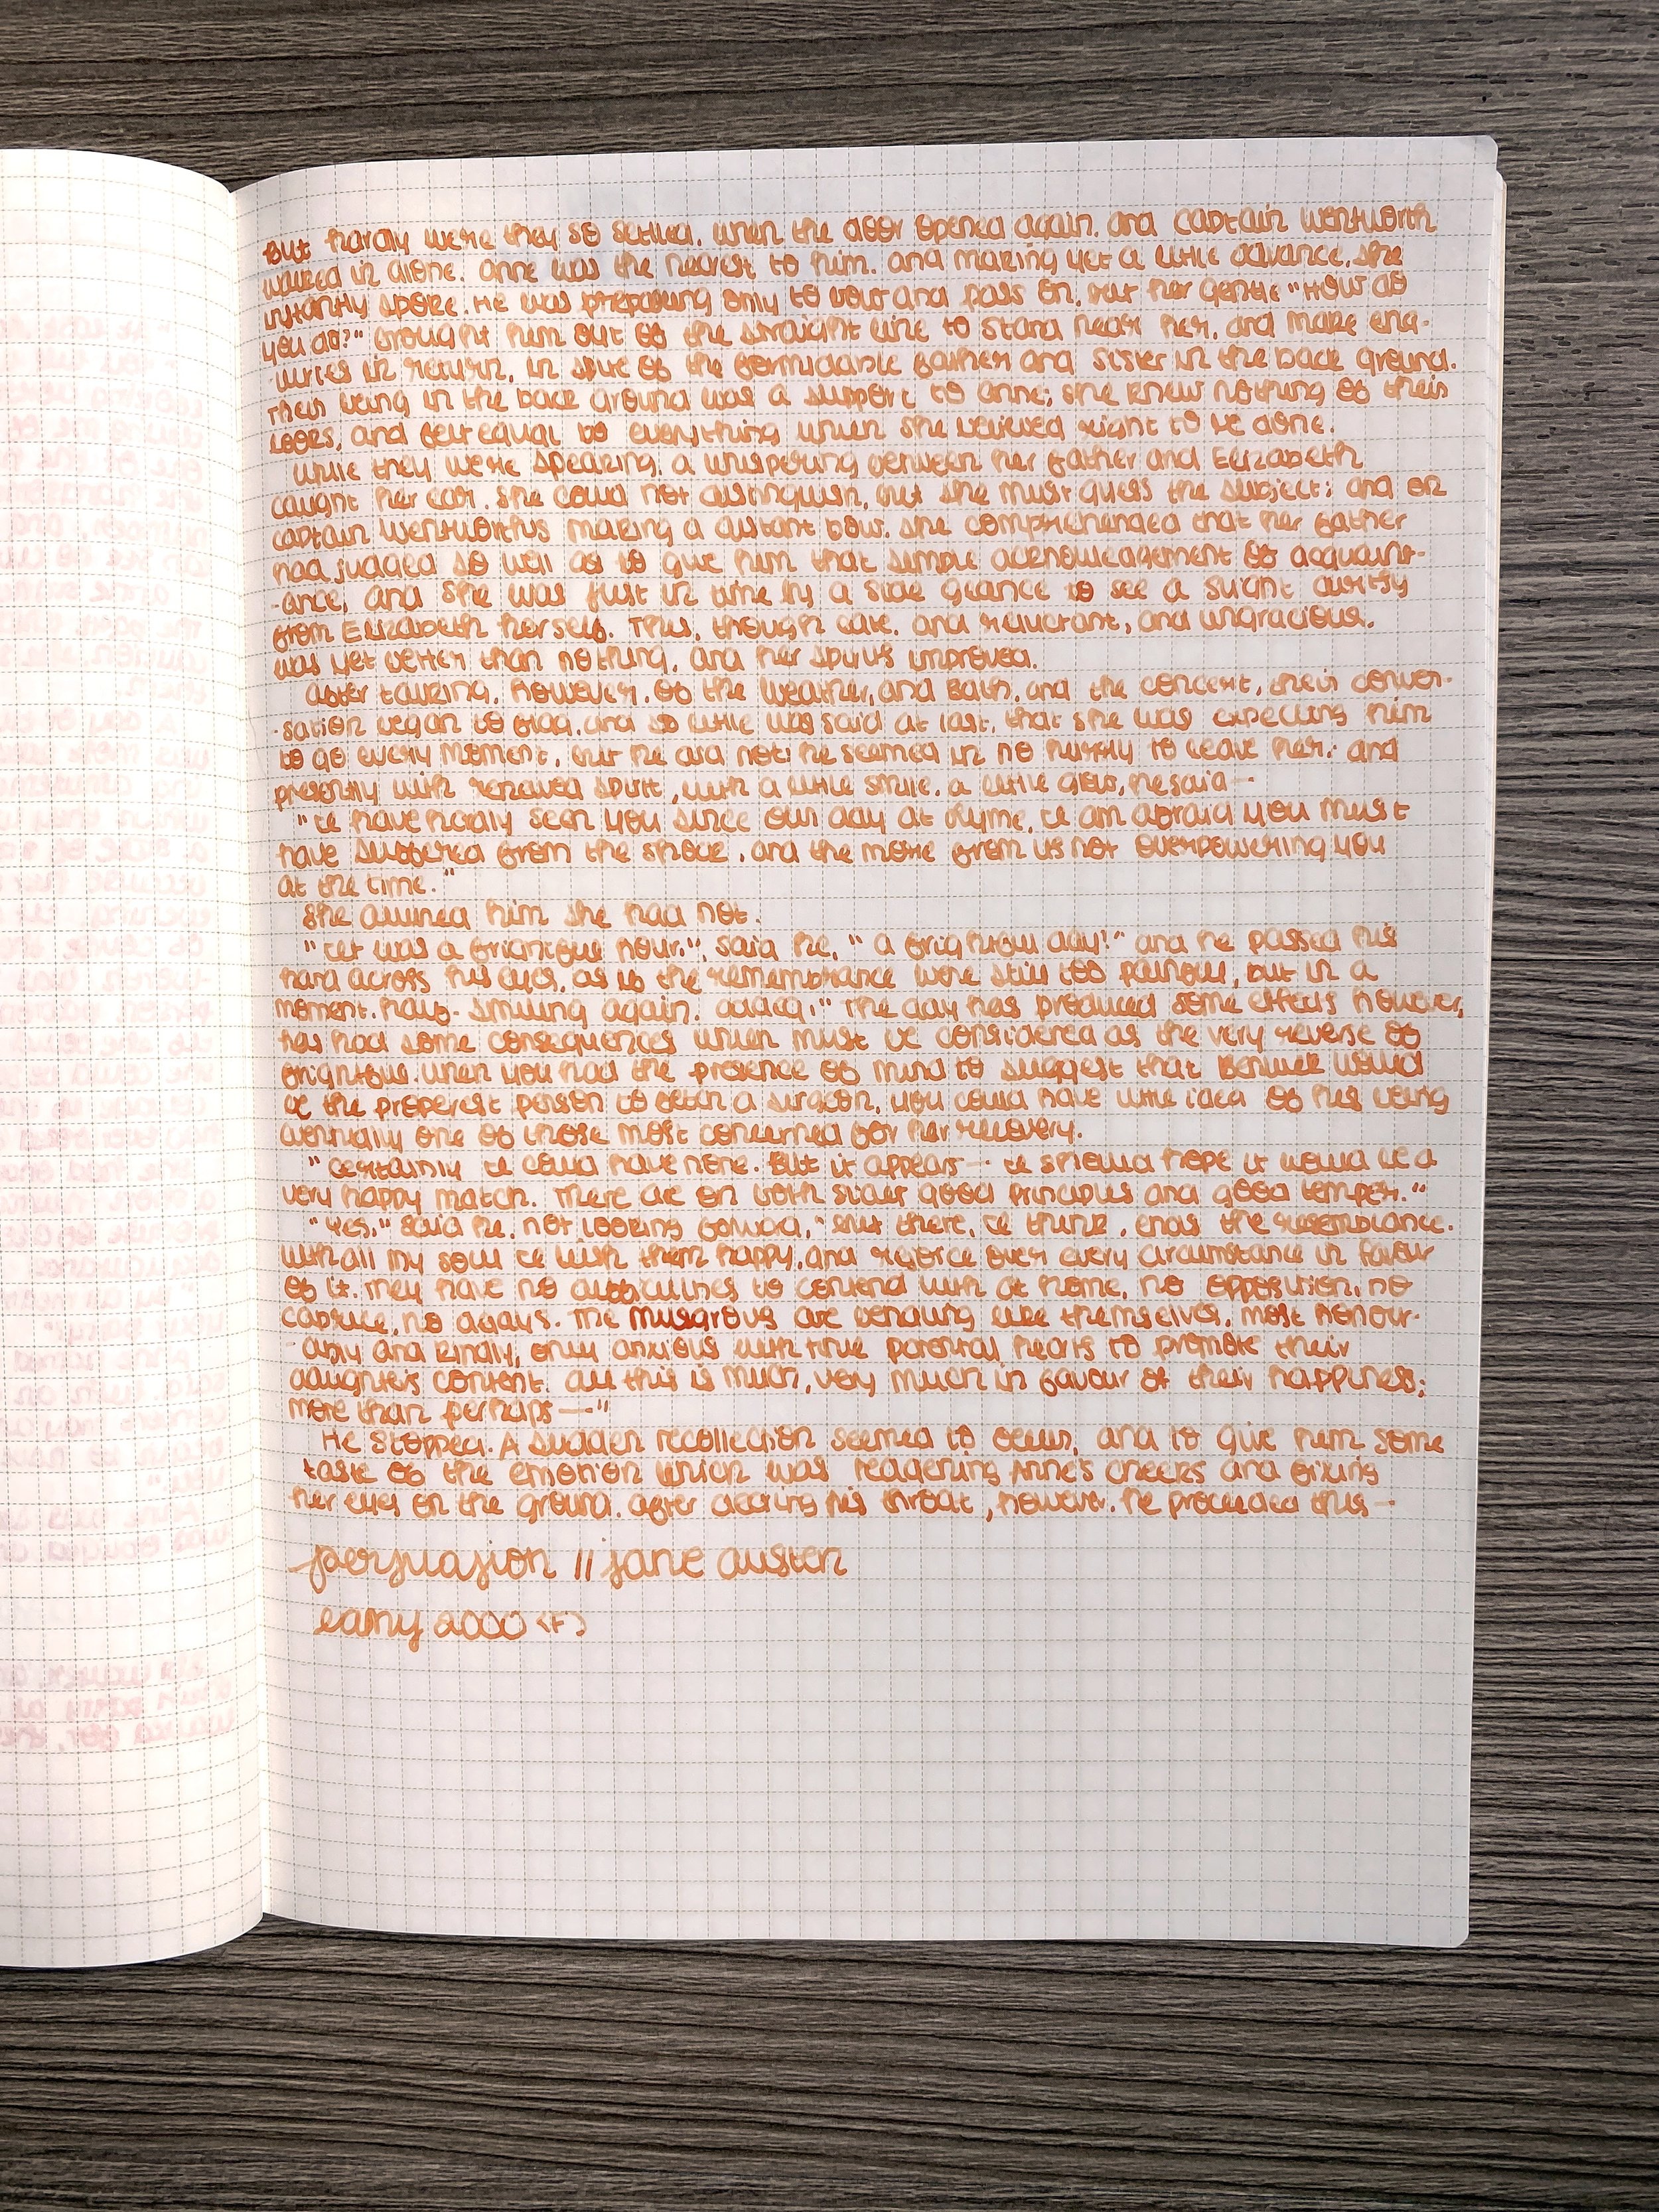 But hardly were they so settled, when the door opened again, and Captain Wentworth
walked in alone. Anne was the nearest to him, and making yet a little advance, she
instantly spoke. He was preparing only to bow and pass on, but her gentle "How do
you do?" brought him out of the straight line to stand near her, and make enq-
uiries in return, in spite of the formidable father and sister in the back ground.
Their being in the back ground was a support to Anne; she knew nothing of their
looks, and felt equal to everything which she believed right to be done.
While they were speaking, a whispering between her father and Elizabeth
caught her ear. She could not distinguish, but she must guess the subject; and on
Captain Wentworth's making a distant bow, she comprehended that her father
had judged so well as to give him that simple acknowledgement of acquaint-
-ance, and she was just in time by a side glance to see a slight curtsy
from Elizabeth herself. This, though late, and reluctant, and ungracious,
was yet better than nothing, and her spirits improved.
After talking, however, of the weather, and Bath, and the concert, their conver-
-sation began to flag, and so little was said at last, that she was expecting him
to go every moment, but he did not; he seemed in no hurry to leave her; and
presently with renewed spirit, with a little smile, a little glow, he said—
"I have hardly seen you since our day at Lyme. I am afraid you must
have suffered from the shock, and the more from its not overpowering you
at the time."
She assured him she had not.
"It was a frightful hour," said he, "a frightful day!" and he passed his
hand across his eyes, as if the remembrance were still too painful, but in a
moment, half smiling again, added, "The day has produced some effects however,
has had some consequences which must be considered as the very reverse of
frightful. When you had the presence of mind to suggest that Benwick would
be the properest person to fetch a surgeon, you could have little idea of his being
eventually one of those most concerned for her recovery.
"Certainly I could have none. But it appears— I should hope it would be a
very happy match. There are on both sides good principles and good temper."
"Yes," said he, not looking forward, "but there, I think, ends the resemblance.
With all my soul I wish them happy, and rejoice over every circumstance in favour
of it. They have no difficulties to contend with at home, no opposition, no
caprice, no delays. The Musgroves are behaving like themselves, most honour-
-ably and kindly, only anxious with true parental hearts to promote their
daughter's content. All this is much, very much in favour of their happiness;
more than perhaps—"
He stopped. A sudden recollection seemed to occur, and to give him some
taste of the emotion which was reddening Anne's cheeks and fixing
her eyes on the ground. After clearing his throat, however, he proceeded thus—
persuasion // jane austen
eamy 2000 <F>